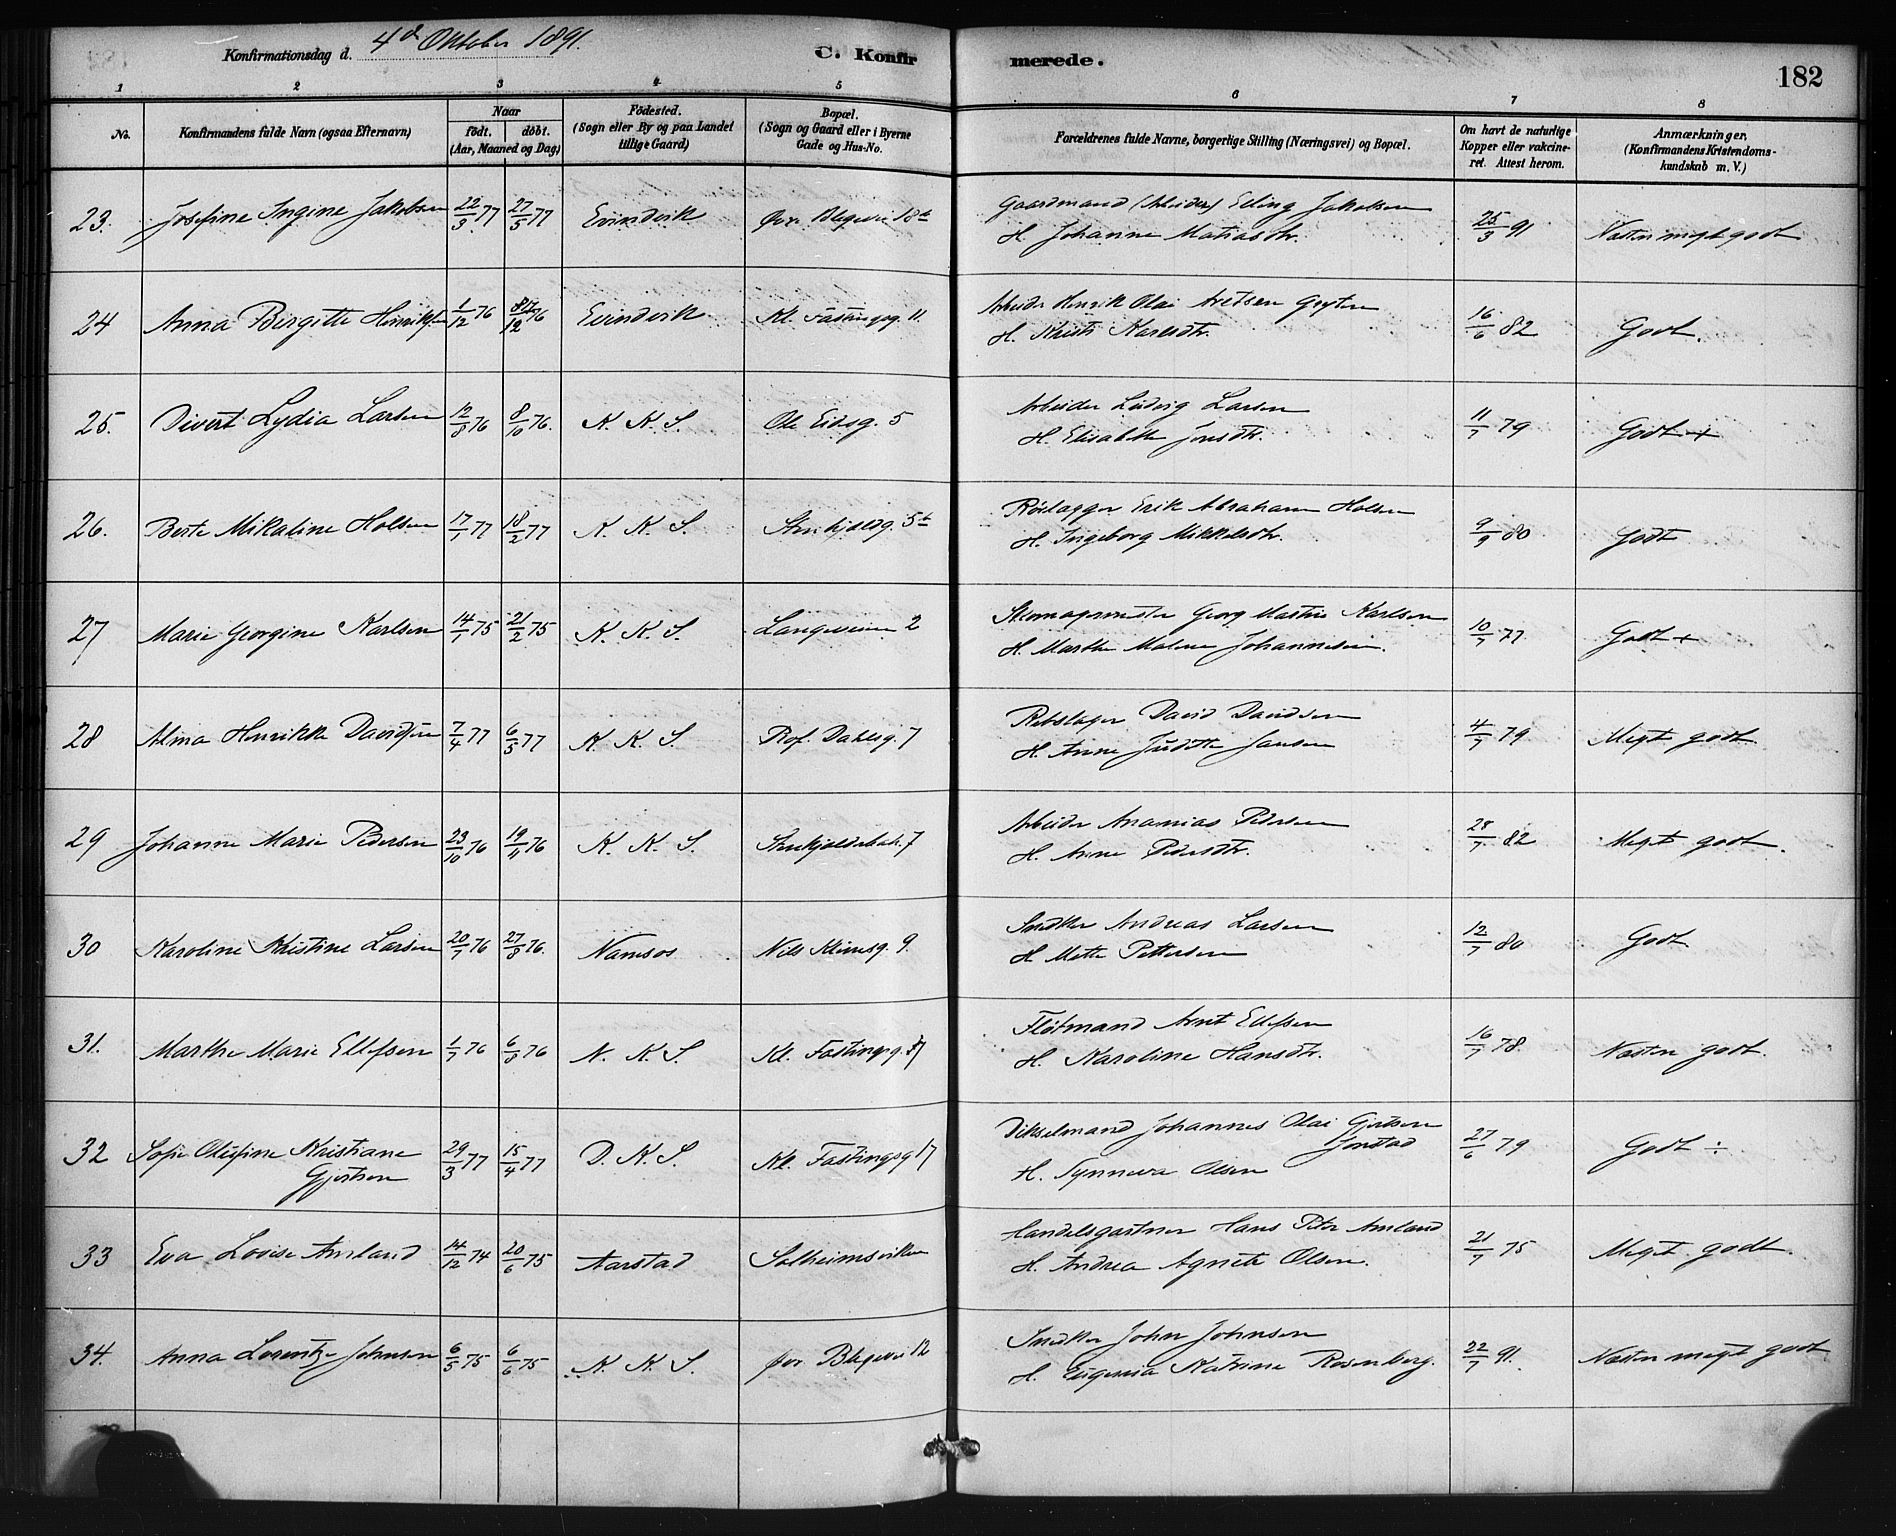 Konfirmationsdag d. 4de Oktober 1891.
C. Konfir
merede.
182
1 2 3 4 5 6 7 8
No.
Konfirmandens fulde Navn (ogsaa Efternavn)
Naar
født. døbt.
(Aar, Maaned og Dag)
Fødested.
(Sogn eller By og paa Landet
tillige Gaard)
Bopæl.
(Sogn og Gaard eller i Byerne
Gade og Hus-No.
Forældrenes fulde Navne, borgerlige Stilling (Næringsvei) og Bopæl.
Om havt de naturlige
Kopper eller vakcine-
ret. Attest herom.
Anmærkninger.
(Konfirmandens Kristendoms-
kundskab m. V.)
23. Josefine Ingine Jakobsen 22/3 77 27/5 77 Evindvik Øvr. Blegevei 18
Gaardmand (Arbeider) Elling Jakobsen
H. Johanne Matiasdtr. 25/3 91 Næsten meget godt
24 Anna Birgitte Henriksen 1/12 76 /12 76 Evindvik Kl. Fastingsg. 11
Arbeider Henrik Olai Aretsen
H. Kristi Karlsdtr. 16/6 82 Godt.
25. Sivert Lydia Larsen 12/9 76 8/10 76. K. K. S. Ole Eidsg. 5
Arbeider Ludvig Larsen
H. Elisabeth Jonsdtr. 11/7 79 Godt +
26. Berte Mikaline Holsen 17/1 77 18/2 77 K. K. S. Stenkjeldg. 5
Erik Abraham Holsen
H. Ingeborg Mikkelsdtr. 9/9 80 Godt
27 Marie Georgine Karlsen 14/1 75 21/2 75 K. K. S. Langeveien 2
Skomagermester Georg Martin Karlsen
H. Marthe Malene Johannesen. 10/7 77 Godt +
28 Alma Henrikke Davidsen 7/4 77 6/5 77 K. K. S. Prof. Dahlsg. 7
Rebslager David Davidsen
H. Anne Juditte Jansen 4/7 79 Meget godt
29 Johanne Marie Pedersen 23/10 76 19/11 76 K. K. S. Stenkjeldebak. 7
Arbeider Ananias Pedersen
H. Anne Pedersdtr. 28/7 82 Meget godt.
30 Karoline Kristine Larsen 20/7 76 27/8 76. Namsos Nils Klimsg. 9.
Snedker Andreas Larsen
H. Mette Pettersen 12/7 80 Godt
31. Marthe Marie Ellefsen 1/7 76 6/8 76 N. K. S. Kl. Fastingsg.
Fløtmand Arnt Ellefsen
H. Karoline Hansdtr. 16/7 78. Næsten godt.
32 Sofie Olufine Kristiane 29/3 77 15/4 77 D. K. S. Kl. Fastingsg 17
Gjertsen
Vikselmand Johannes Olai Gjertsen
Jonstad
H. Synneva Olsen 27/6 79 Godt ÷
33 Eva Lovise Amland 14/12 74 20/6 75 Aarstad Solheimsviken
Handelsgartner Hans Peter Amland
H. Andrea Agnete Olsen. 21/7 75 Meget godt.
34. Anna Lorentze Johnsen 6/5 75 6/6 75 K. K. S. Øvr Blegevei 12
Snedker John Johnsen
H. Eugenia Katrine Rosenberg. 22/7 91. Næsten meget godt